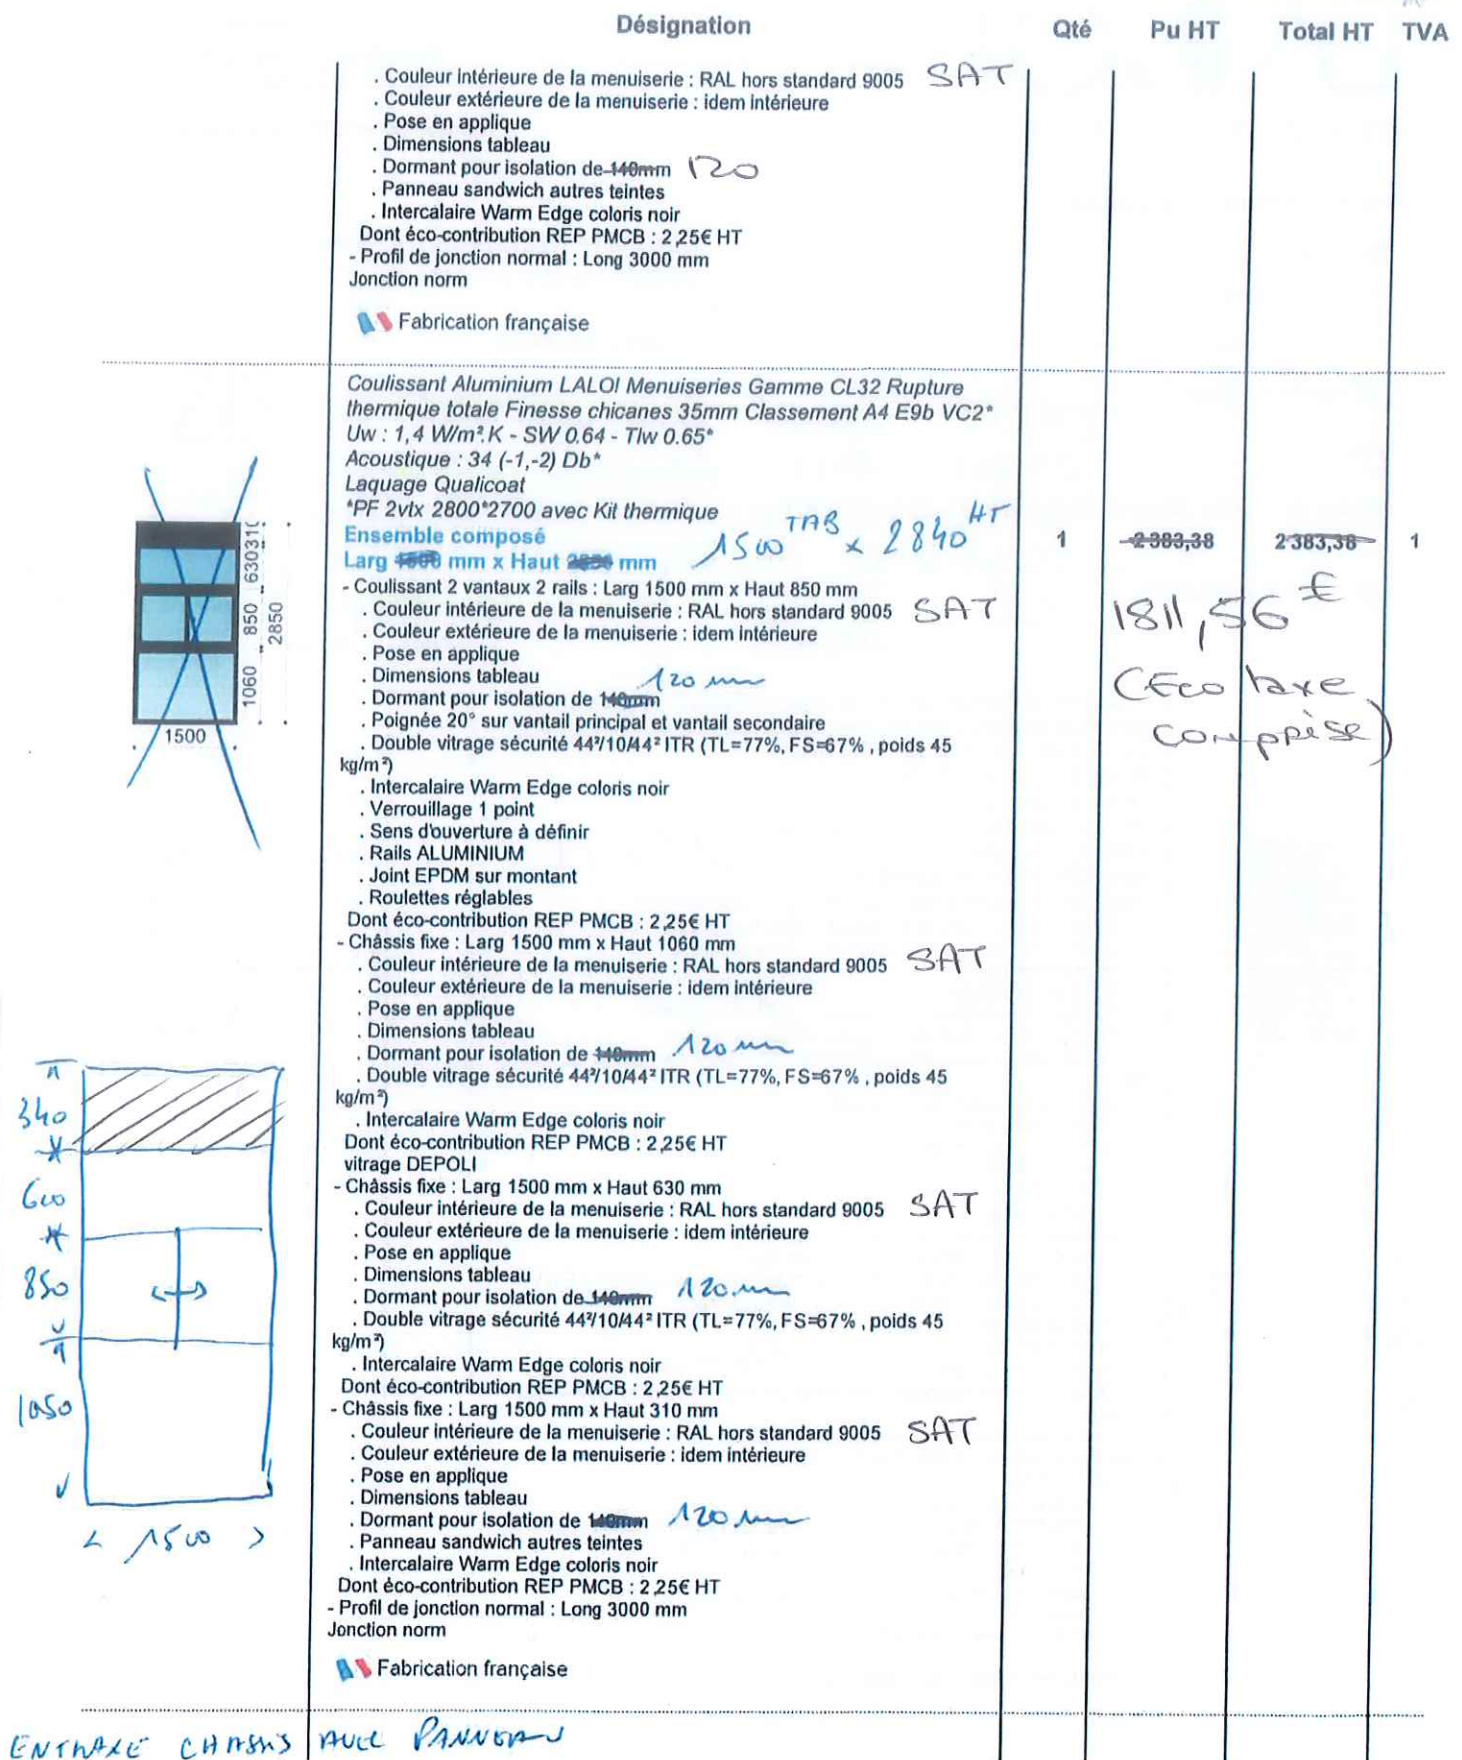 Désignation Qté Pu HT Total HT TVA
. Couleur intérieure de la menuiserie : RAL hors standard 9005 SAT
. Couleur extérieure de la menuiserie : idem intérieure
. Pose en applique
. Dimensions tableau
. Dormant pour isolation de 140mm 120
. Panneau sandwich autres teintes
. Intercalaire Warm Edge coloris noir
Dont éco-contribution REP PMCB : 2,25€ HT
- Profil de jonction normal : Long 3000 mm
Jonction norm
Fabrication française
Coulissant Aluminium LALOI Menuiseries Gamme CL32 Rupture
thermique totale Finesse chicanes 35mm Classement A4 E9b VC2*
Uw : 1,4 W/m².K - SW 0.64 - Tlw 0.65*
Acoustique : 34 (-1,-2) Db*
Laquage Qualicoat
*PF 2vtx 2800*2700 avec Kit thermique
Ensemble composé 1500 TAB x 2840 HT 1 2 383,38 2 383,38 1
Larg mm x Haut mm
- Coulissant 2 vantaux 2 rails : Larg 1500 mm x Haut 850 mm
. Couleur intérieure de la menuiserie : RAL hors standard 9005 SAT 1811,56 €
. Couleur extérieure de la menuiserie : idem intérieure
. Pose en applique
. Dimensions tableau 120 mm (Eco taxe
. Dormant pour isolation de 140mm
. Poignée 20° sur vantail principal et vantail secondaire comprise)
. Double vitrage sécurité 44²/10/44² ITR (TL=77%, FS=67% , poids 45
kg/m²)
. Intercalaire Warm Edge coloris noir
. Verrouillage 1 point
. Sens d'ouverture à définir
. Rails ALUMINIUM
. Joint EPDM sur montant
. Roulettes réglables
Dont éco-contribution REP PMCB : 2,25€ HT
- Châssis fixe : Larg 1500 mm x Haut 1060 mm
. Couleur intérieure de la menuiserie : RAL hors standard 9005 SAT
. Couleur extérieure de la menuiserie : idem intérieure
. Pose en applique
. Dimensions tableau
. Dormant pour isolation de 140mm 120 mm
. Double vitrage sécurité 44²/10/44² ITR (TL=77%, FS=67% , poids 45
kg/m²)
. Intercalaire Warm Edge coloris noir
Dont éco-contribution REP PMCB : 2,25€ HT
vitrage DEPOLI
- Châssis fixe : Larg 1500 mm x Haut 630 mm
. Couleur intérieure de la menuiserie : RAL hors standard 9005 SAT
. Couleur extérieure de la menuiserie : idem intérieure
. Pose en applique
. Dimensions tableau
. Dormant pour isolation de 140mm 120 mm
. Double vitrage sécurité 44²/10/44² ITR (TL=77%, FS=67% , poids 45
kg/m²)
. Intercalaire Warm Edge coloris noir
Dont éco-contribution REP PMCB : 2,25€ HT
- Châssis fixe : Larg 1500 mm x Haut 310 mm
. Couleur intérieure de la menuiserie : RAL hors standard 9005 SAT
. Couleur extérieure de la menuiserie : idem intérieure
. Pose en applique
. Dimensions tableau
. Dormant pour isolation de 140mm 120 mm
. Panneau sandwich autres teintes
. Intercalaire Warm Edge coloris noir
Dont éco-contribution REP PMCB : 2,25€ HT
- Profil de jonction normal : Long 3000 mm
Jonction norm
Fabrication française
630 310
850
2850
1060
1500
340
600
850
1050
< 1500 >
ENTRAXE CHASSIS AVEC PANNEAU